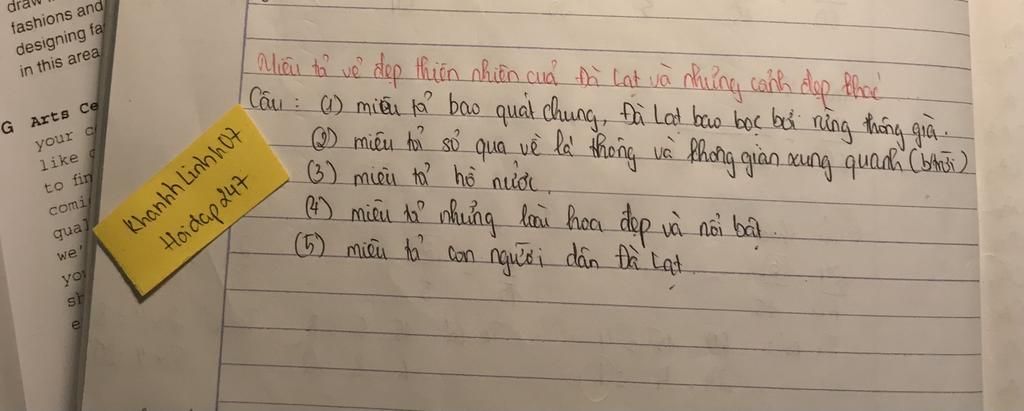 draw
fashions and
designing fa
in this area
G Arts Ce
your c
like
to fin
comi
qual
we'
you
sh
e
Miêu tả vẻ đẹp thiên nhiên của Đà Lạt và những cảnh đẹp khác
Câu : (1) miêu tả bao quát chung, Đà Lạt bao bọc bởi rừng thông già.
(2) miêu tả sơ qua về lá thông và không gian xung quanh (btrời)
(3) miêu tả hồ nước.
(4) miêu tả những loài hoa đẹp và nổi bật.
(5) miêu tả con người dân Đà Lạt.
KhanhhLinhh07
Hoidap247